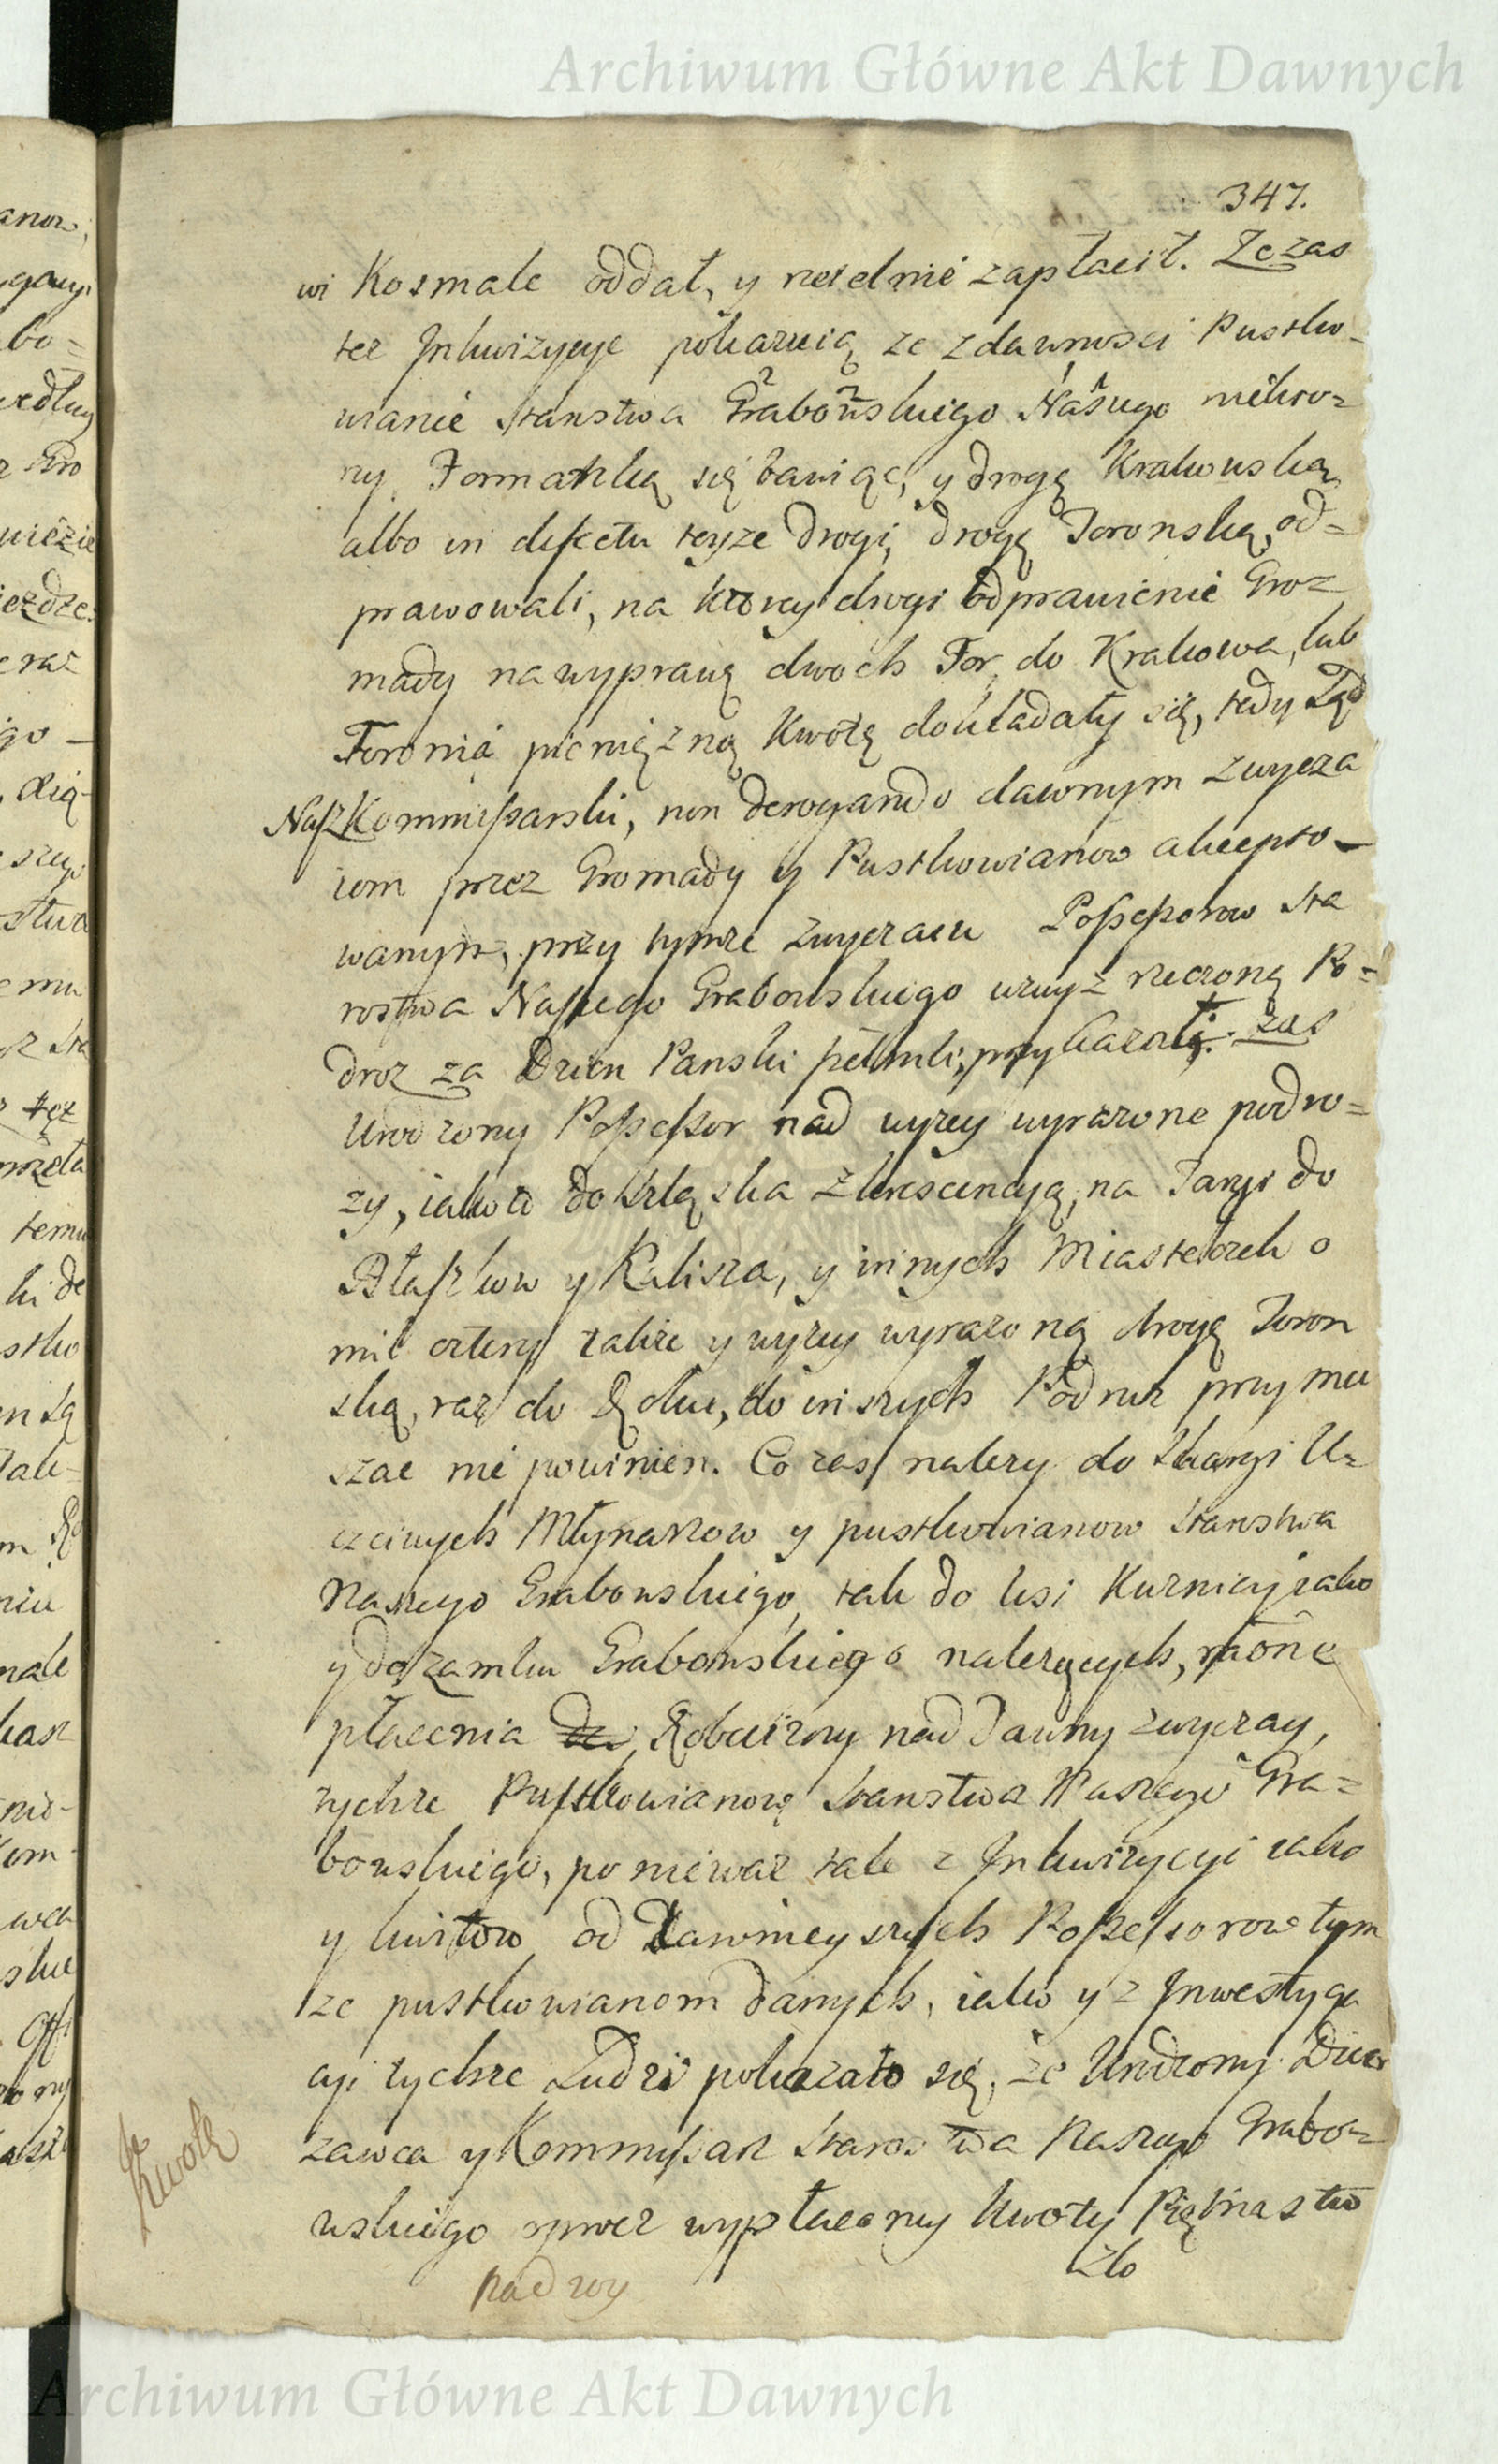 Archiwum Główne Akt Dawnych
347.
wi Kosmale oddał, y rzetelnie zapłacił. Ze zas
tez Inkwizycye pokazuią ze zdawnosci Pustko-
wianie Starostwa Grabowskiego Naszego niektorzy
ny Formanką się bawiąc, y drogę Krakowską
albo in defectu teyze drogi, drogę Toronską od=
prawowali, na ktorey drogi odprawienie Gro=
mady na wyprawę dwoch For do Krakowa, lub
Toronia pieniężną kwotę dokładały się, tedy Sąd
Nasz Kommissarski, non derogando dawnym zwycza
iom przez Gromady y Pustkowianow akcepto-
wanym, przy tymze zwyczaiu Possessorow Sta
rostwa Naszego Grabowskiego wzwyż rzeczoną Po=
droz za Dzien Panski pełnili, przykazał. zas
Urodzony Possessor nad wyzey wyrazone podro=
zy, iako to do Szląska z krescencyą, na Targi do
Błaszkow y Kalisza, y innych Miasteczek o
mil cztery także y wyzey wyrazoną drogę Toron
ską, raz do Roku, do inszych Podroz przymu
szac nie powinien. Co zas nalezy do Skargi U=
czciwych Młynarzow y pustkowianow Starostwa
Naszego Grabowskiego, tak do Wsi Kuznicy iako
y do zamku Grabowskiego nalezących, racione
płacenia Robocizny nad Dawny zwyczay,
tychze Pustkowianow Starostwa Naszego Gra=
bowskiego, poniewaz tak z Inkwizycyi iako
y kwitow od Dawnieyszych Possessorow tym
ze pustkowianom danych, iako y z Inwestyga
cyi tychze Ludzi pokazało się, że Urodzony Dzier
zawca y Kommissarz Starostwa Naszego Grabo=
wskiego oprocz wypłaconey kwoty Piętnastu
zło
Kwotę
nad wy
Archiwum Główne Akt Dawnych